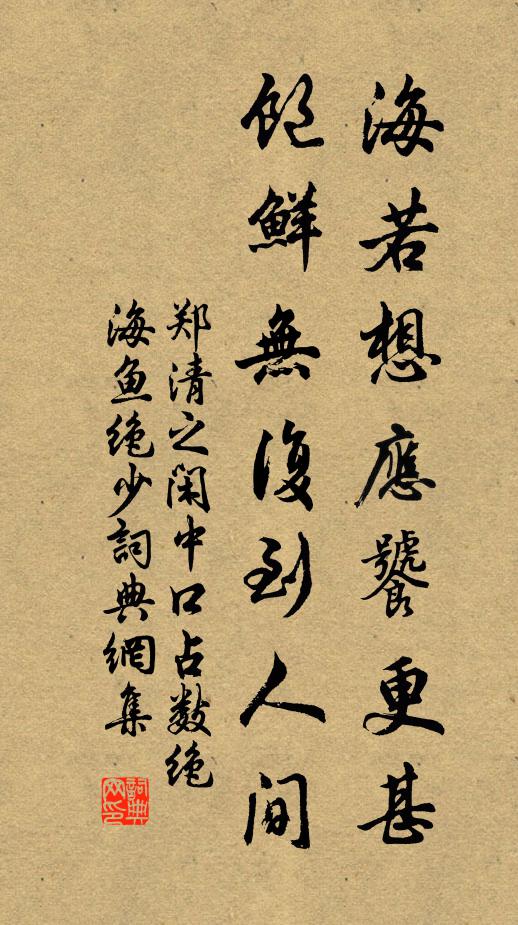 海若想應饕更甚
飽鮮無復到人間
郑清之闲中口占数绝
海鱼绝少詞典網集
詞典网印